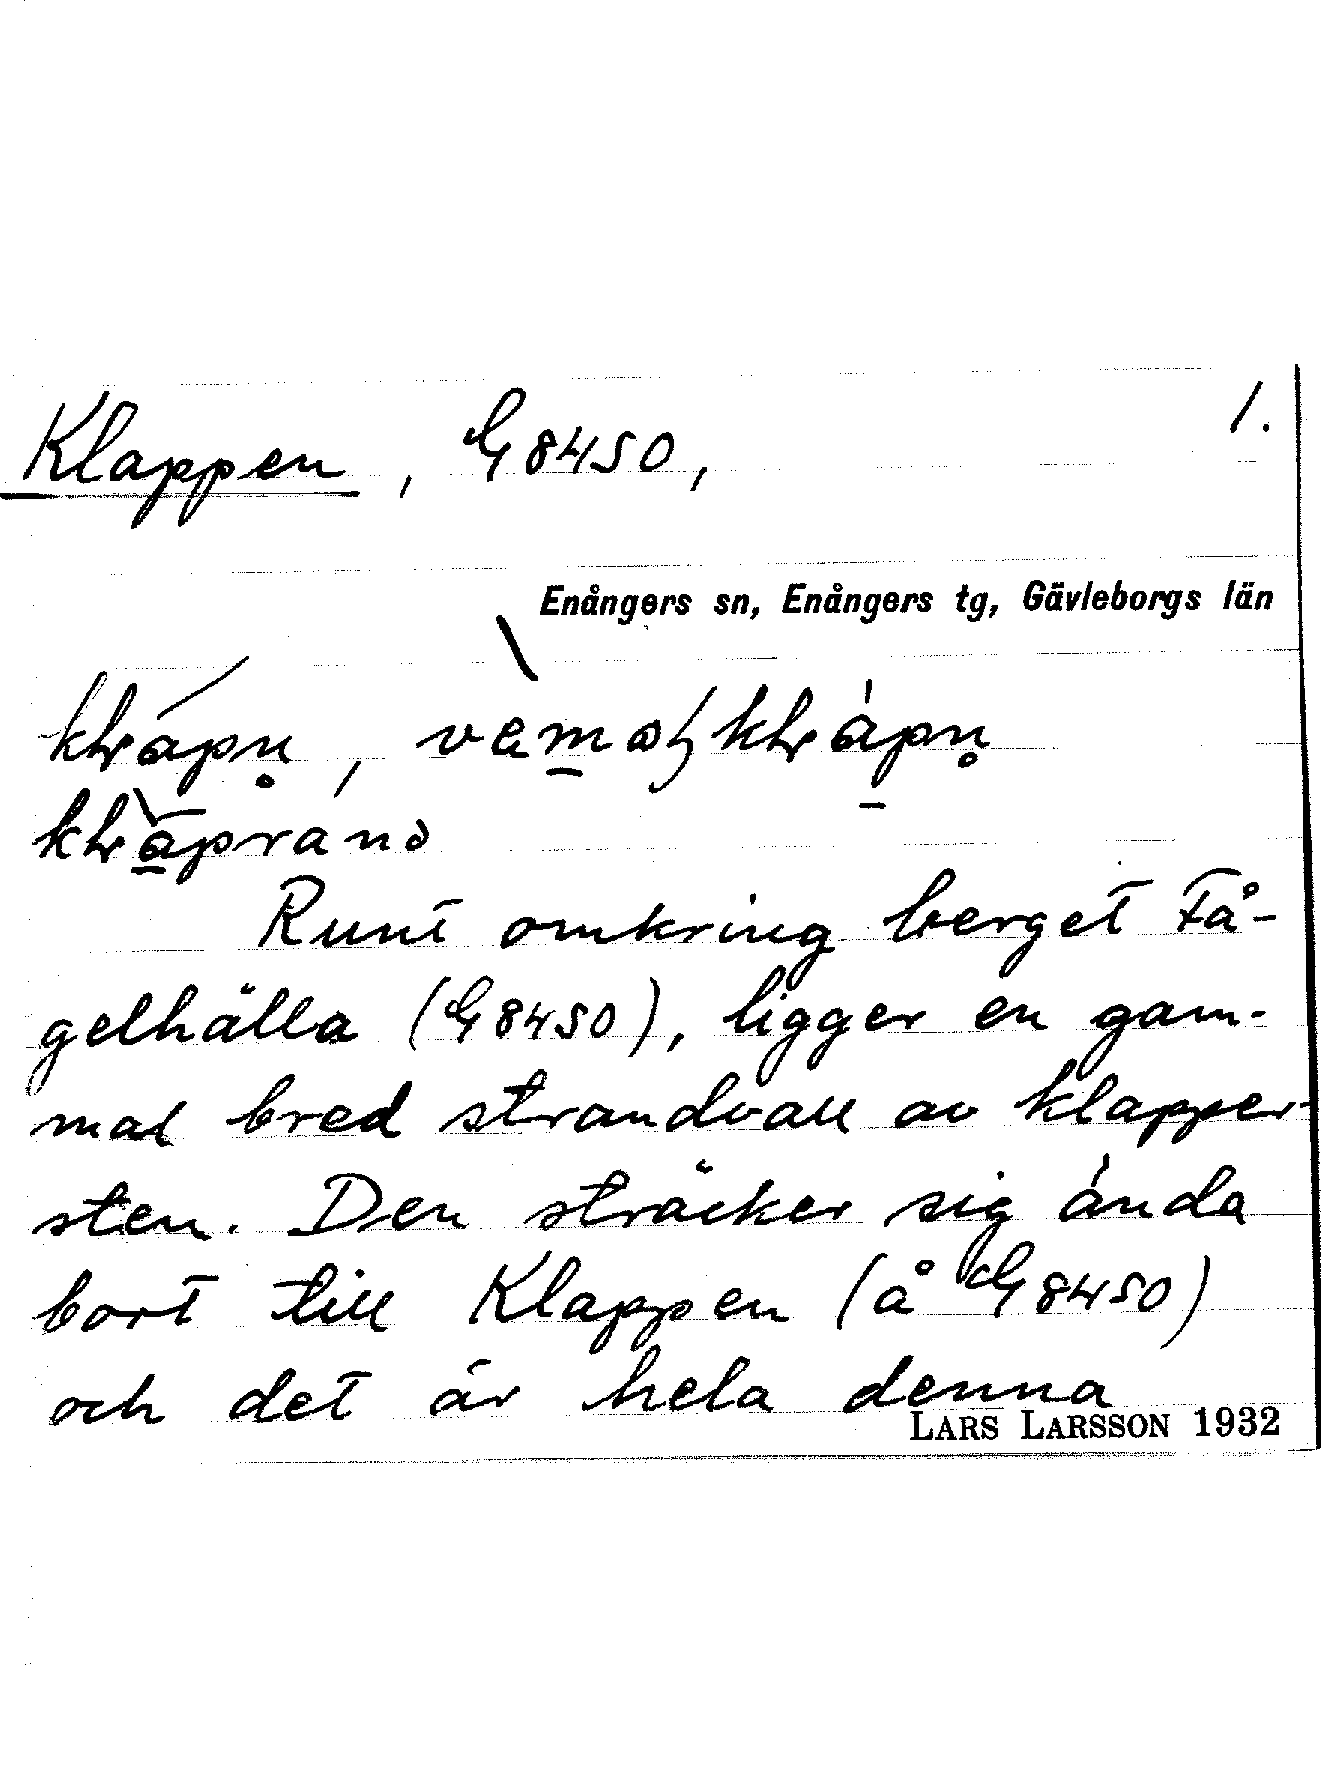 Klappen, G8450, 1.
Enångers sn, Enångers tg, Gävleborgs län
Runt omkring berget Få-
gelhälla (G8450), ligger en gam-
mal bred strandvall av klapper-
sten. Den sträcker sig ända
bort till Klappen (å G8450)
och det är hela denna
LARS LARSSON 1932